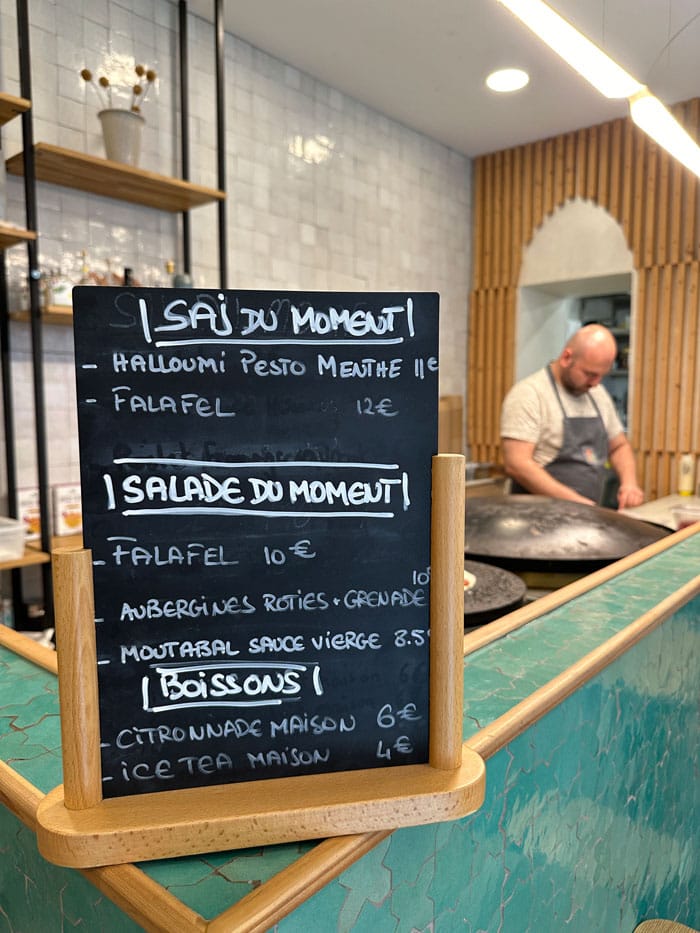 SAJ DU MOMENT
- HALLOUMI PESTO MENTHE 11€
- FALAFEL 12€
SALADE DU MOMENT
- FALAFEL 10€
- AUBERGINES ROTIES + GRENADE 10€
- MOUTABAL SAUCE VIERGE 8.5
BOISSONS
- CITRONNADE MAISON 6€
- ICE TEA MAISON 4€